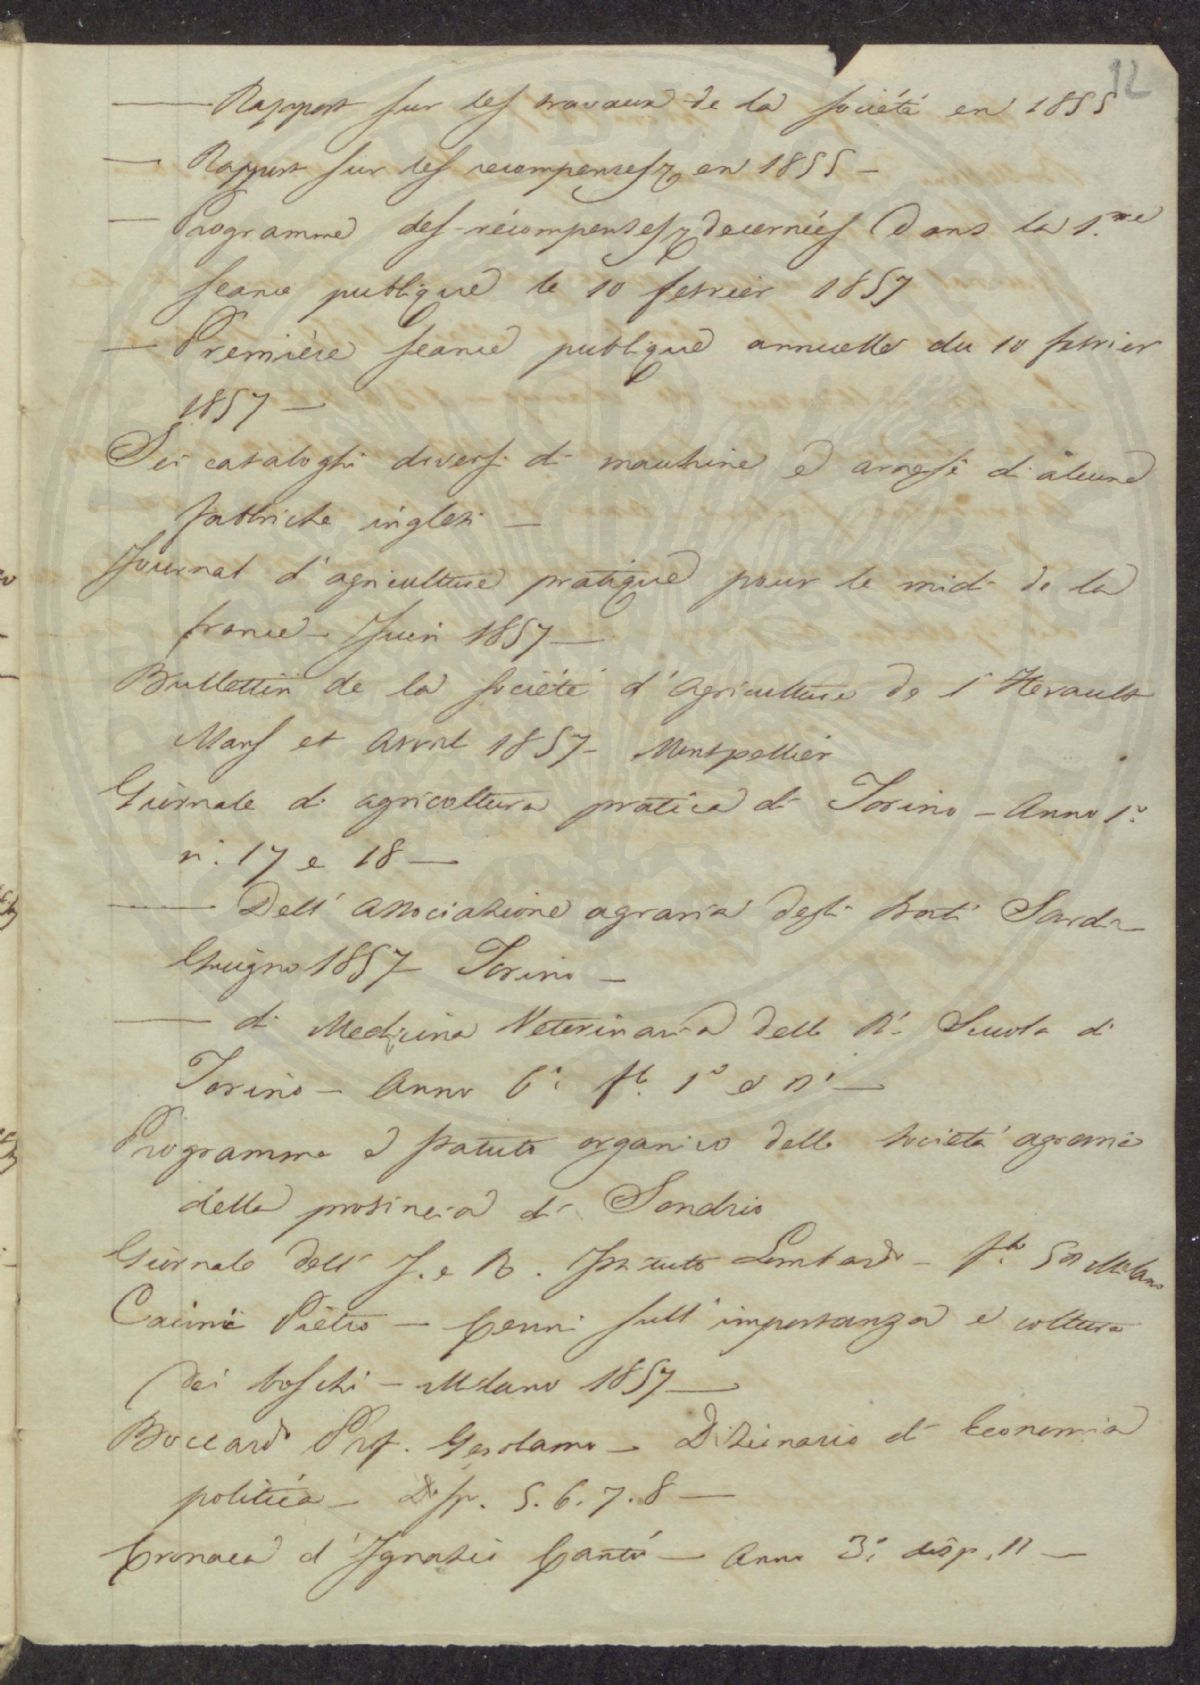 12
— Rapport sur les travaux de la société en 1855
— Rapport sur les recompenses en 1855 —
— Programme des récompenses decernées dans la 1.re
seance publique le 10 fevrier 1857
— Première seance publique annuelle du 10 fevrier
1857 —
Sei cataloghi diversi di macchine e arnesi di alcune
fabbriche inglesi —
Journal d'agriculture pratique pour le midi de la
france — Juin 1857 —
Bullettin de la société d'Agriculture de l'Herault
Mars et Avril 1857 — Montpellier
Giornale di agricoltura pratica di Torino — Anno 1.°
n.i 17 e 18 —
— Dell'associazione agraria degli Stati Sardi —
Giugno 1857 — Torino —
— di Medicina Veterinaria della R.a Scuola di
Torino — Anno 6.° f. 1° e
Programma e statuto organico della società agraria
della provincia di Sondrio
Giornale dell'I. e R. Istituto Lombardo — Milano
Caimi Pietro — Cenni sull'importanza e coltura
dei boschi — Milano 1857 —
Boccardo Prof. Gerolamo — Dizionario di Economia
politica — Disp. 5. 6. 7. 8 —
Cronaca d'Ignazio Cantù — Anno 3.° disp. 11 —